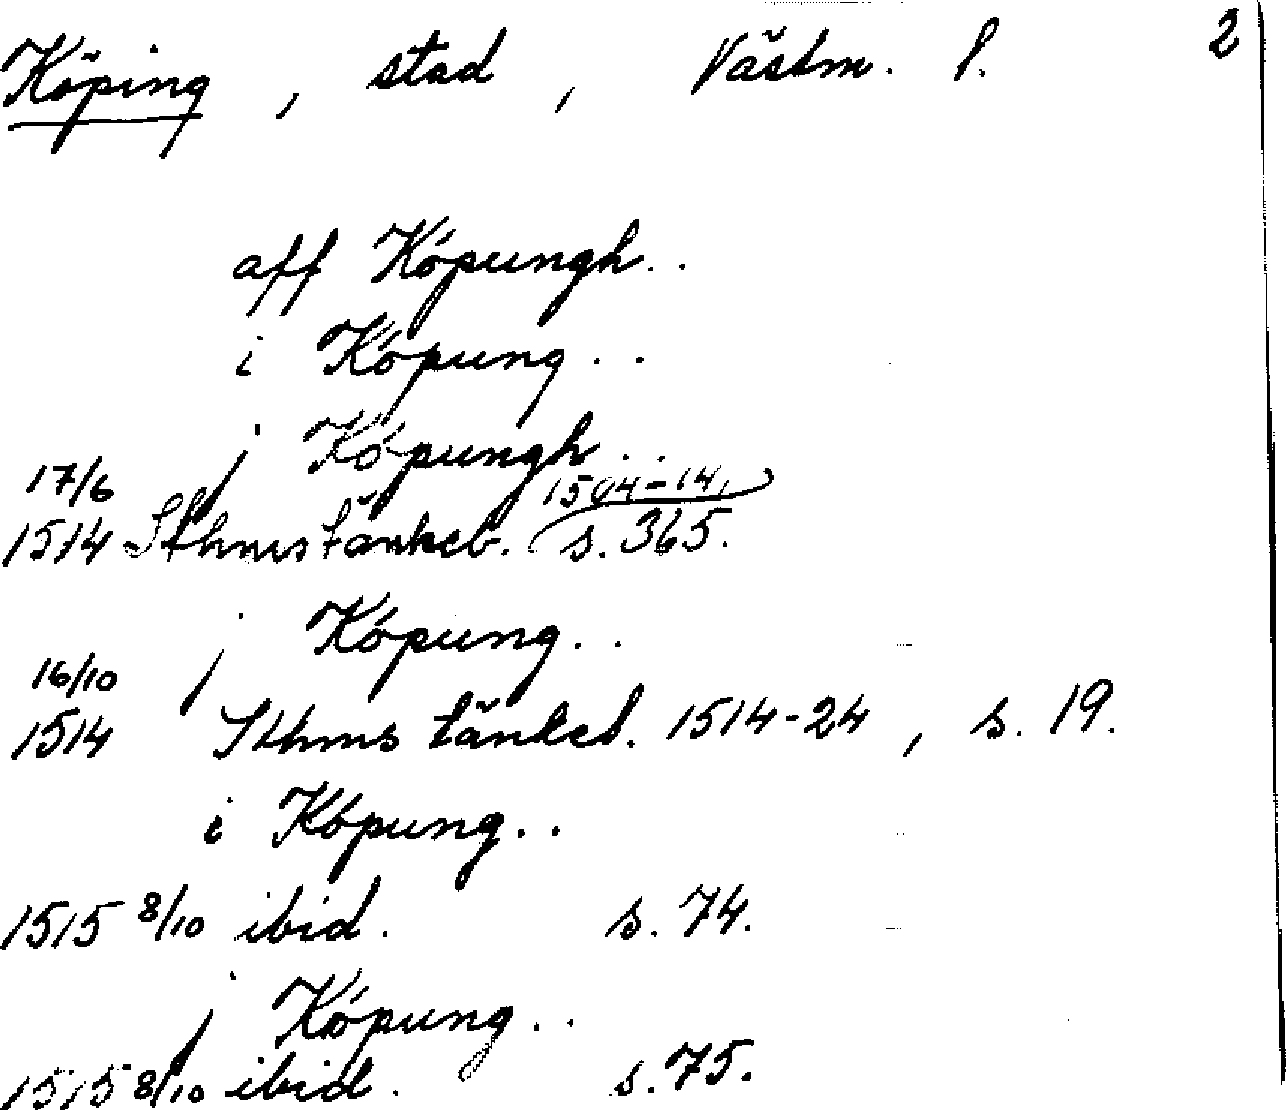 Köping, stad, Västm. l. 2
aff Kópungh..
i Kópung..
j Kópungh..
17/6 1504-14,
1514 Sthms tänkeb. s. 365.
j Kópung..
16/10
1514 Sthms tänkeb. 1514-24, s. 19.
i Kópung..
1515 8/10 ibid. s. 74.
j Kópung..
1515 8/10 ibid. s. 75.